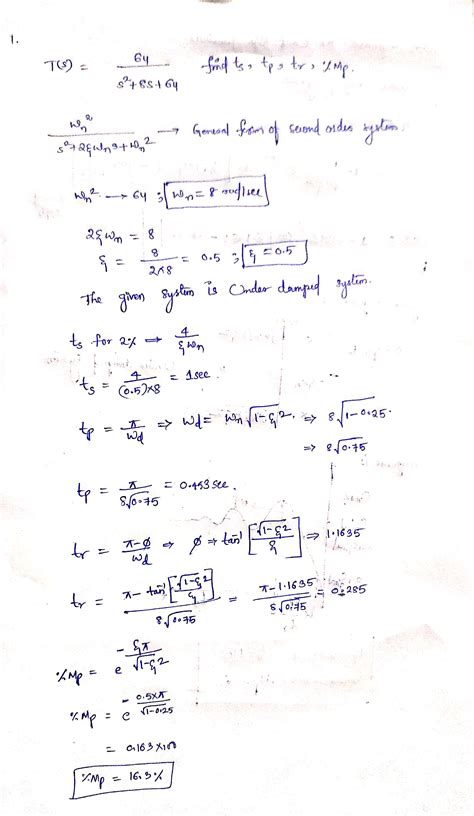 1.
T(s) = 64 / (s² + 8s + 64) find ts, tp, tr, %Mp.
ωn² / (s² + 2ξωns + ωn²) → General form of second order system.
ωn² → 64 ; ωn = 8 rad/sec
2ξωn = 8
ξ = 8 / (2×8) = 0.5 ; ξ = 0.5
The given system is Under damped system.
ts for 2% ⇒ 4 / ξωn
ts = 4 / (0.5)×8 = 1sec.
tp = π / ωd ⇒ ωd = ωn √(1-ξ²) ⇒ 8√(1-0.25)
⇒ 8√0.75
tp = π / 8√0.75 = 0.453 sec.
tr = (π-ø) / ωd ⇒ ø ⇒ tan⁻¹ [√(1-ξ²) / ξ] ⇒ 1.1635
tr = (π - tan⁻¹ [√(1-ξ²) / ξ]) / 8√0.75 = (π-1.1635) / 8√0.75 = 0.285
%Mp = e^(-ξπ / √(1-ξ²))
%Mp = e^(-0.5×π / √(1-0.25))
= 0.163×100
%Mp = 16.3%